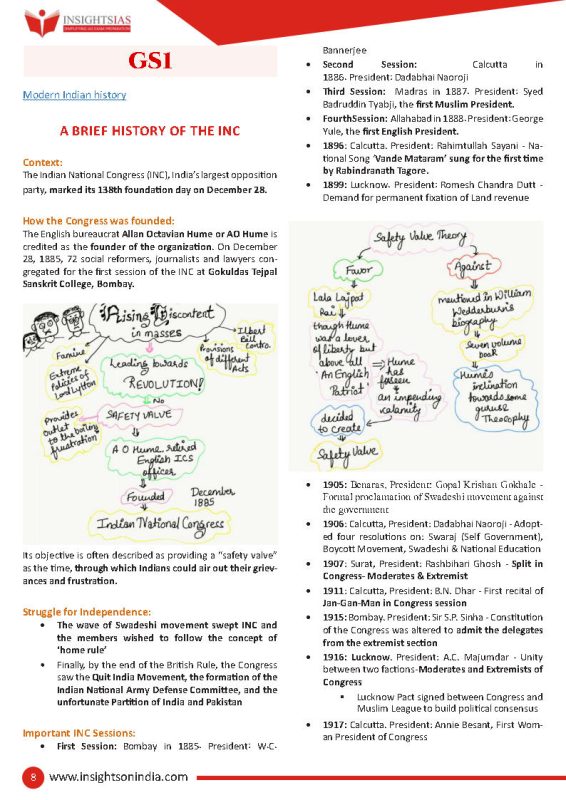 INSIGHTSIAS
SIMPLIFYING IAS EXAM PREPARATION
GS1
Modern Indian history
A BRIEF HISTORY OF THE INC
Context:
The Indian National Congress (INC), India's largest opposition
party, marked its 138th foundation day on December 28.
How the Congress was founded:
The English bureaucrat Allan Octavian Hume or AO Hume is
credited as the founder of the organization. On December
28, 1885, 72 social reformers, journalists and lawyers con-
gregated for the first session of the INC at Gokuldas Tejpal
Sanskrit College, Bombay.
Rising Discontent
in masses
Ilbert
Bill
Contro.
Provisions
of different
Acts
Famine
Extreme
Policies of
Lord Lytton
Leading towards
REVOLUTION!
No
Provides
outlet
to the boiling
frustration
SAFETY VALVE
A O Hume, retired
English ICS
officer
Founded
December
1885
Indian National Congress
Its objective is often described as providing a "safety valve"
as the time, through which Indians could air out their griev-
ances and frustration.
Struggle for Independence:
• The wave of Swadeshi movement swept INC and
the members wished to follow the concept of
'home rule'
• Finally, by the end of the British Rule, the Congress
saw the Quit India Movement, the formation of the
Indian National Army Defense Committee, and the
unfortunate Partition of India and Pakistan
Important INC Sessions:
• First Session: Bombay in 1885. President: W.C.
Bannerjee
• Second Session: Calcutta in
1886. President: Dadabhai Naoroji
• Third Session: Madras in 1887. President: Syed
Badruddin Tyabji, the first Muslim President.
• FourthSession: Allahabad in 1888. President: George
Yule, the first English President.
• 1896: Calcutta. President: Rahimtullah Sayani - Na-
tional Song 'Vande Mataram' sung for the first time
by Rabindranath Tagore.
• 1899: Lucknow. President: Romesh Chandra Dutt -
Demand for permanent fixation of Land revenue
Safety Valve Theory
Favor
Against
Lala Lajpat
Rai
though Hume
was a lover
of liberty but
above all
'An English
Patriot'
Hume
has
forseen
an impending
calamity
decided
to create
Safety Valve
mentioned in William
Wedderburn's
biography
Seven volume
book
Hume's
inclination
towards some
guruse
Theosophy
• 1905: Benaras, President: Gopal Krishan Gokhale -
Formal proclamation of Swadeshi movement against
the government
• 1906: Calcutta, President: Dadabhai Naoroji - Adopt-
ed four resolutions on: Swaraj (Self Government),
Boycott Movement, Swadeshi & National Education
• 1907: Surat, President: Rashbihari Ghosh - Split in
Congress- Moderates & Extremist
• 1911: Calcutta, President: B.N. Dhar - First recital of
Jan-Gan-Man in Congress session
• 1915: Bombay. President: Sir S.P. Sinha - Constitution
of the Congress was altered to admit the delegates
from the extremist section
• 1916: Lucknow. President: A.C. Majumdar - Unity
between two factions-Moderates and Extremists of
Congress
▪ Lucknow Pact signed between Congress and
Muslim League to build political consensus
• 1917: Calcutta. President: Annie Besant, First Wom-
an President of Congress
8 www.insightsonindia.com